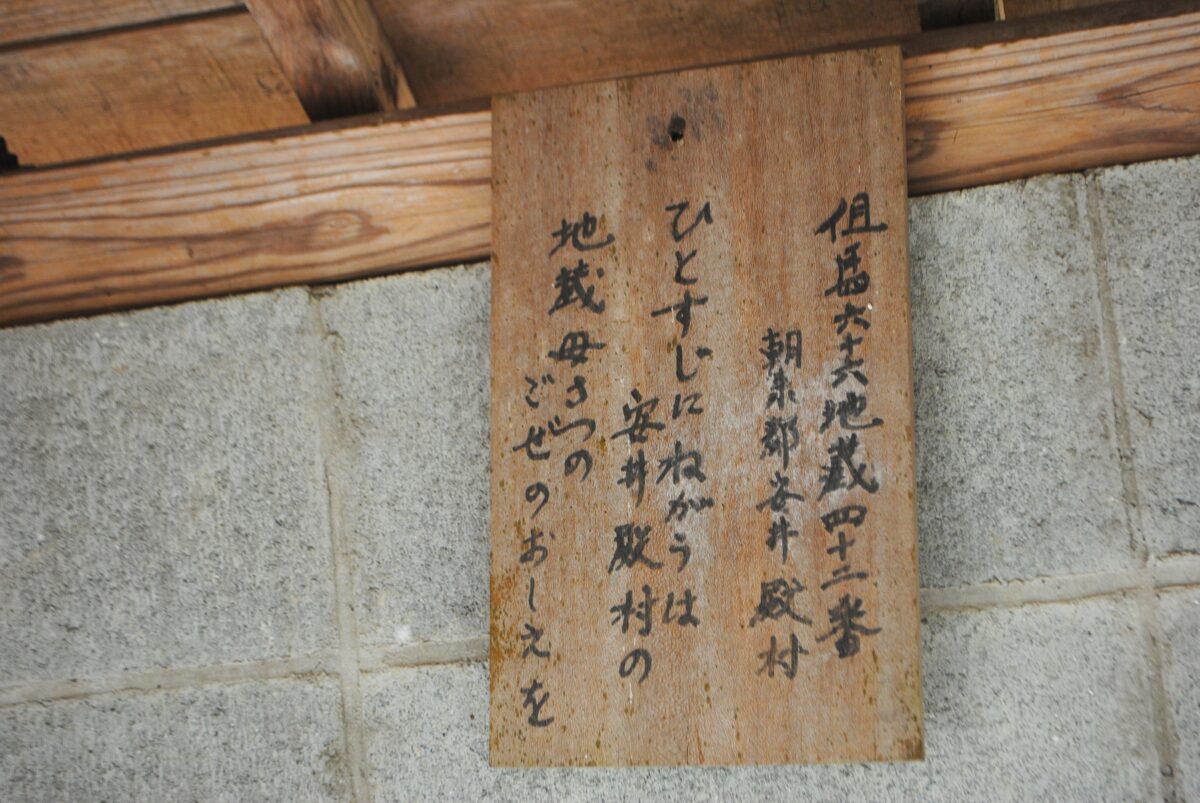 但馬六十六地蔵四十二番
朝来郡安井殿村
ひとすじにねがうは
安井殿村の
地蔵母さつの
ごぜのおしえを